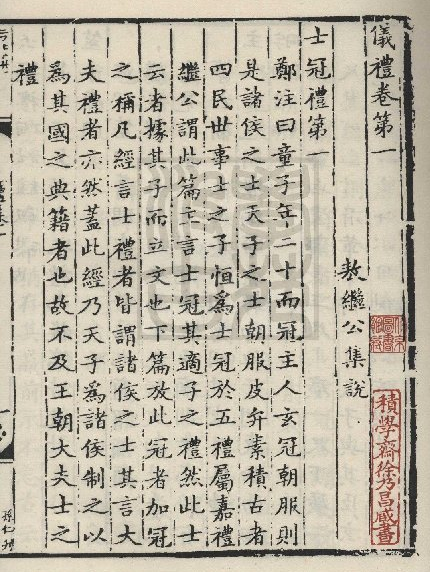 儀禮卷第一
敖繼公集說
積學齋徐乃昌藏書
士冠禮第一
鄭注曰童子年二十而冠主人玄冠朝服則
是諸侯之士天子之士朝服皮弁素積古者
四民世事士之子恒為士冠於五禮屬嘉禮
繼公謂此篇主言士冠其適子之禮然此士
云者據其子而立文也下篇放此冠者加冠
之稱凡經言士禮者皆謂諸侯之士其言大
夫禮者亦然蓋此經乃天子為諸侯制之以
為其國之典籍者也故不及王朝大夫士之
禮